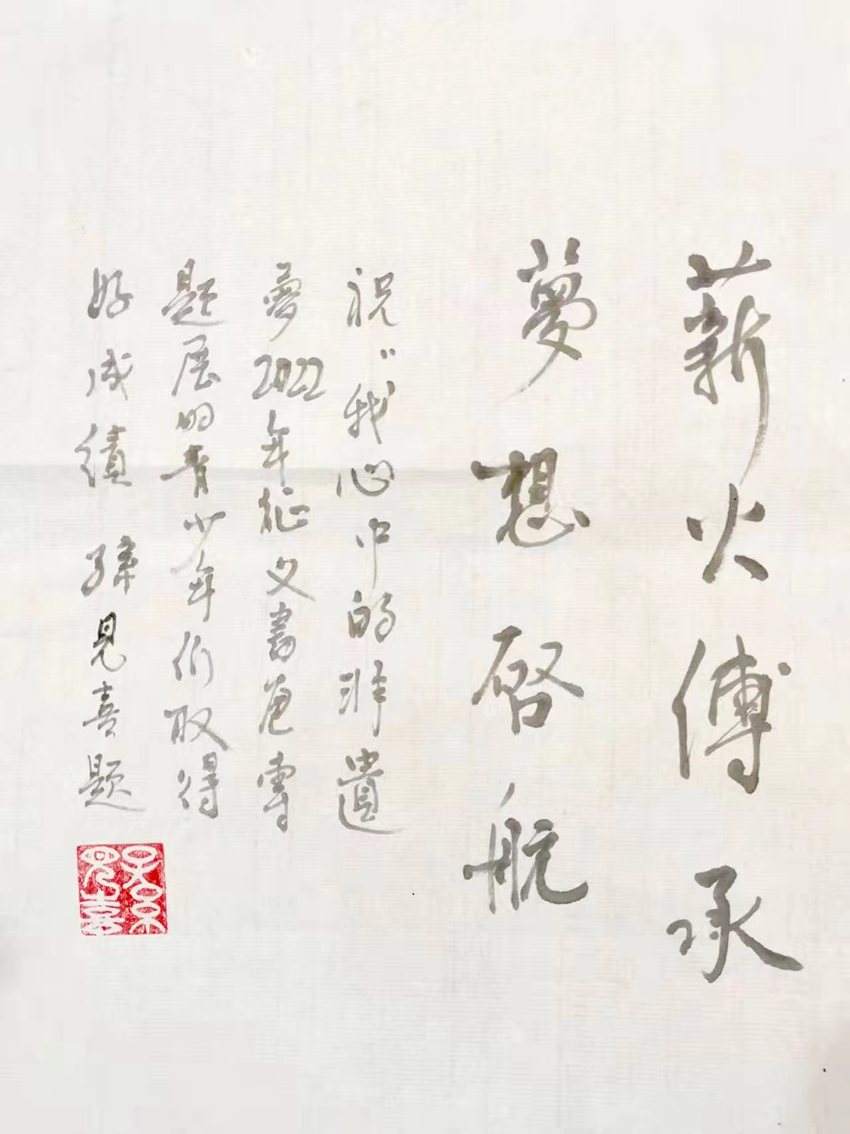 薪火傳承
夢想啓航
祝“我心中的非遺
夢2022年征文書画專
题展的青少年们取得
好成績 孫見喜题
孫見喜